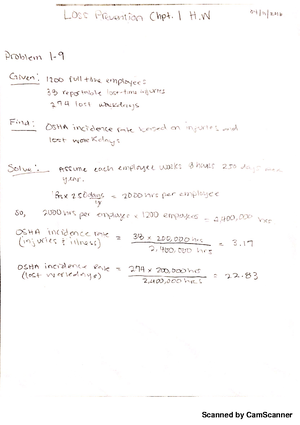 Loss Prevention Chpt. 1 H.W
Problem 1-9
Given: 1200 full time employees
38 reportable lost-time injuries
274 lost workdays
Find: OSHA incidence rate based on injuries and
lost workdays
Solve: Assume each employee works 8 hours 250 days
year.
8hr x 250 days = 2000 hrs per employee
yr
So, 2000 hrs per employee x 1200 employees = 2,400,000 hrs
OSHA incidence rate = 38 x 200,000 hrs = 3.17
(injuries & illness) 2,400,000 hrs
OSHA incidence Rate = 274 x 200,000 hrs = 22.83
(lost workdays) 2,400,000 hrs
Scanned by CamScanner